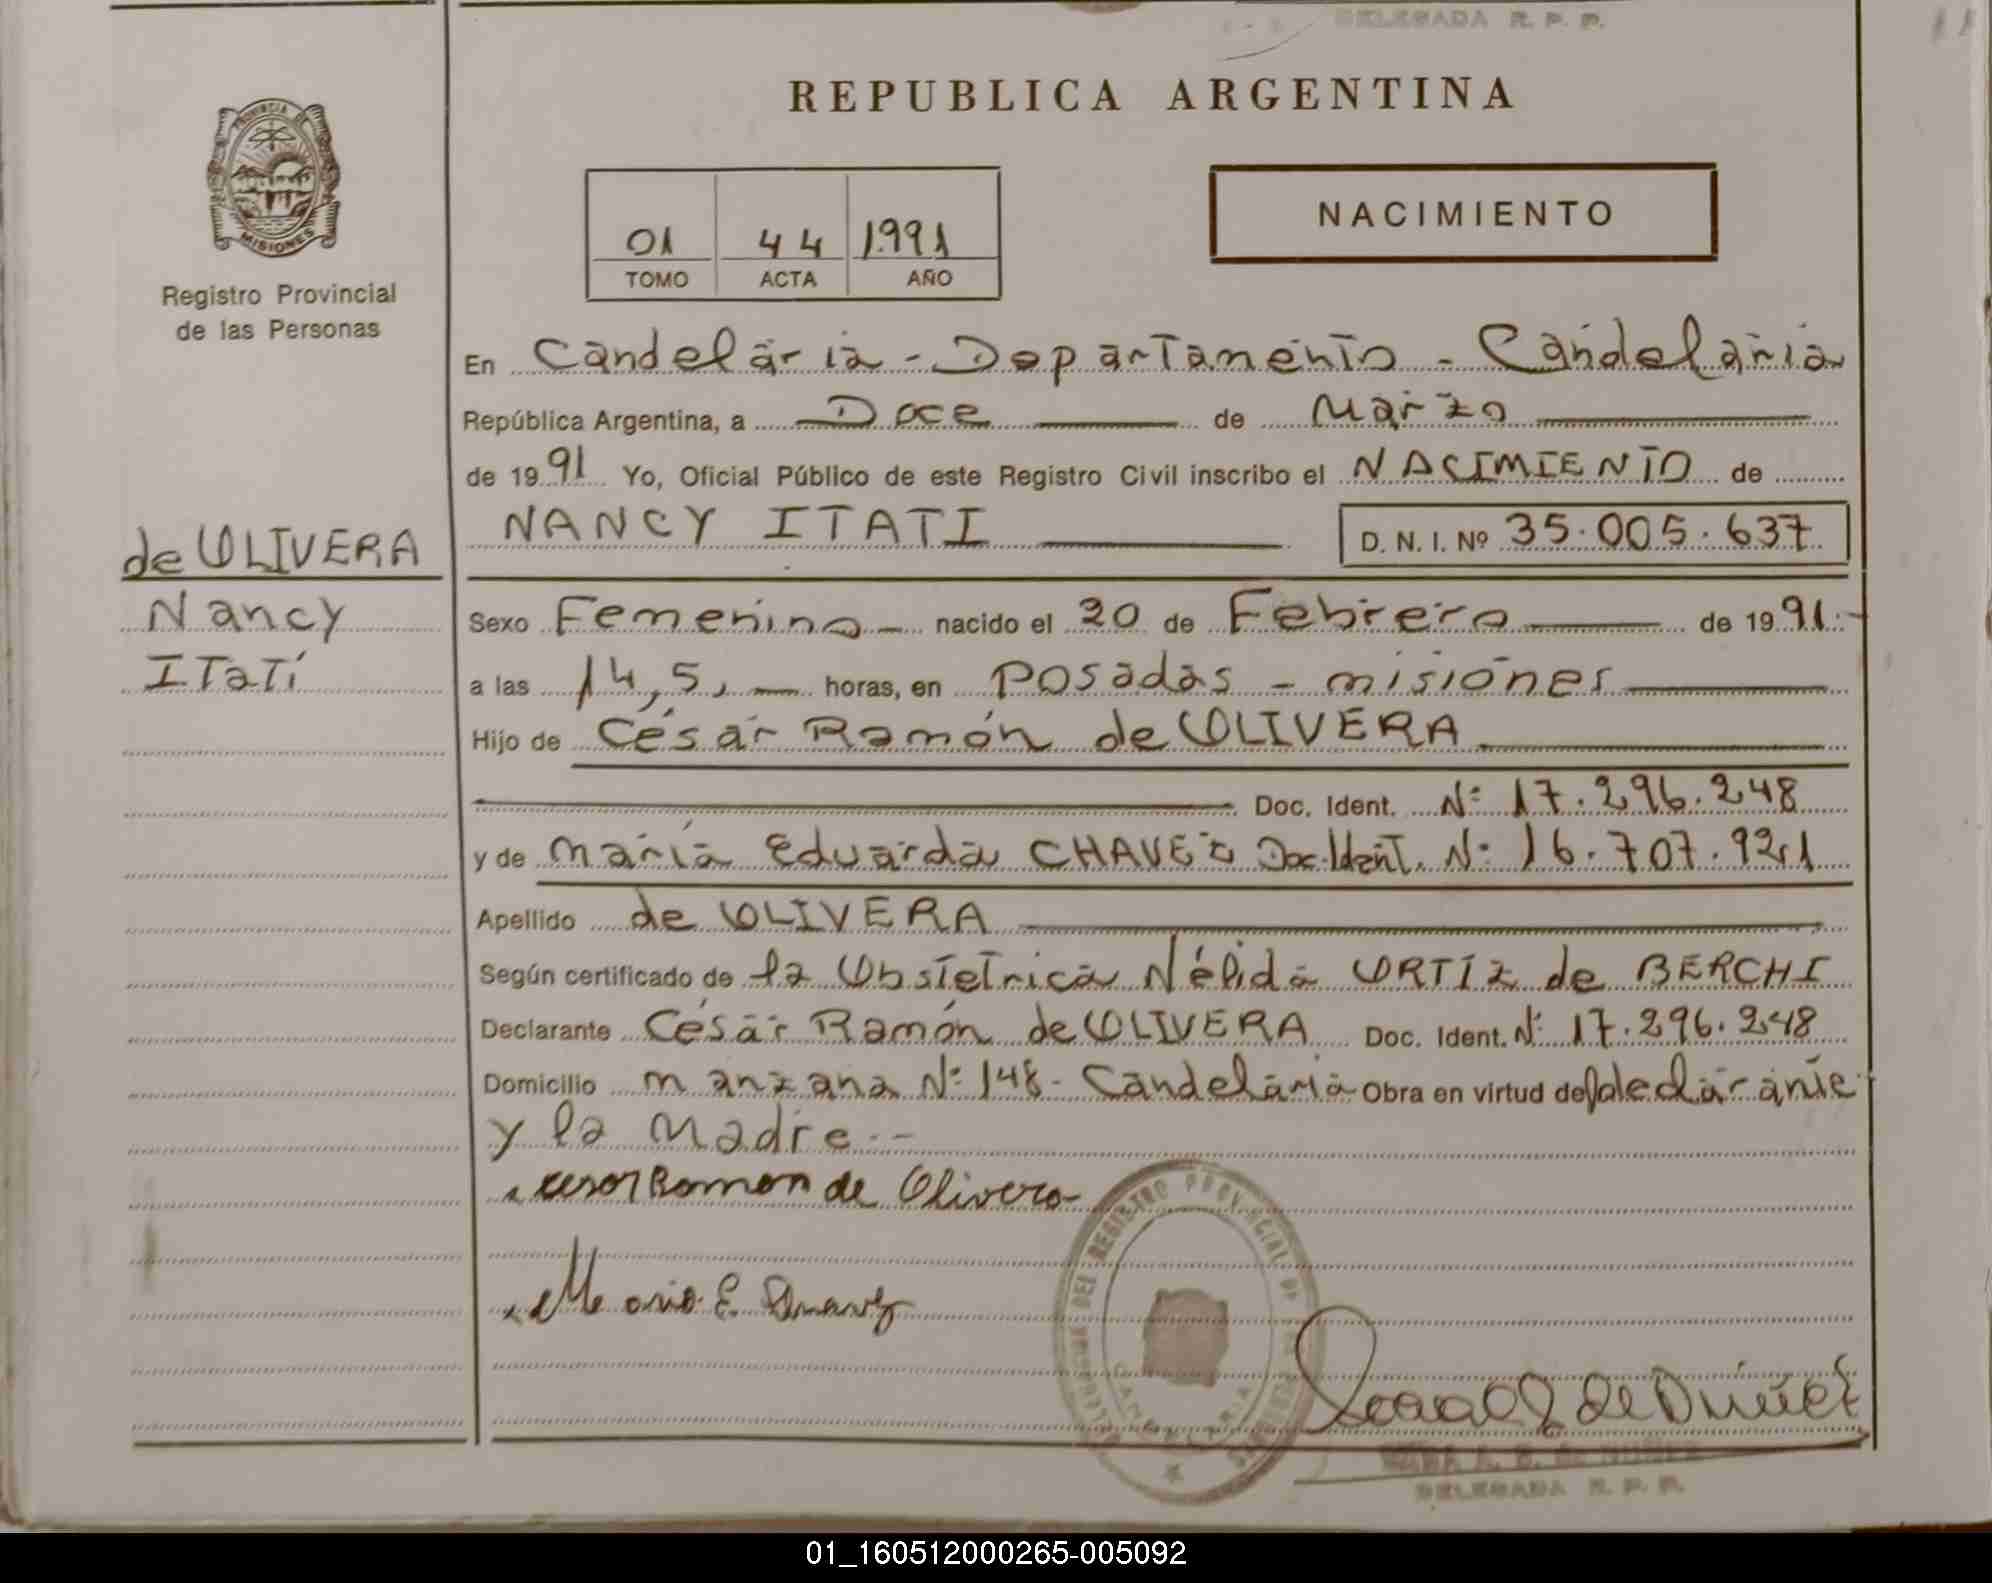 DELEGADA R. P. P.
REPUBLICA ARGENTINA
PROVINCIA DE
MISIONES
Registro Provincial
de las Personas
01 44 1991
TOMO ACTA AÑO
NACIMIENTO
En Candelaria - Departamento - Candelaria
República Argentina, a Doce de Marzo
de 1991 Yo, Oficial Público de este Registro Civil inscribo el NACIMIENTO de
NANCY ITATI D. N. I. Nº 35.005.637
de OLIVERA
Nancy
Itatí
Sexo Femenino - nacido el 20 de Febrero de 1991.-
a las 14,5, horas, en Posadas - misiones
Hijo de César Ramón de OLIVERA
Doc. Ident. Nº 17.296.248
y de María Eduarda CHAVEZ Doc. Ident. Nº 16.707.921
Apellido de OLIVERA
Según certificado de la Obstetrica Nélida ORTIZ de BERCHI
Declarante César Ramón de OLIVERA Doc. Ident. Nº 17.296.248
Domicilio manzana Nº 148 - Candelaria Obra en virtud de
y la Madre.-
cesar Ramon de Olivera
DEL REGISTRO PROVINCIAL DE
CANDELARIA
DELEGADA R. P. P.
01_160512000265-005092